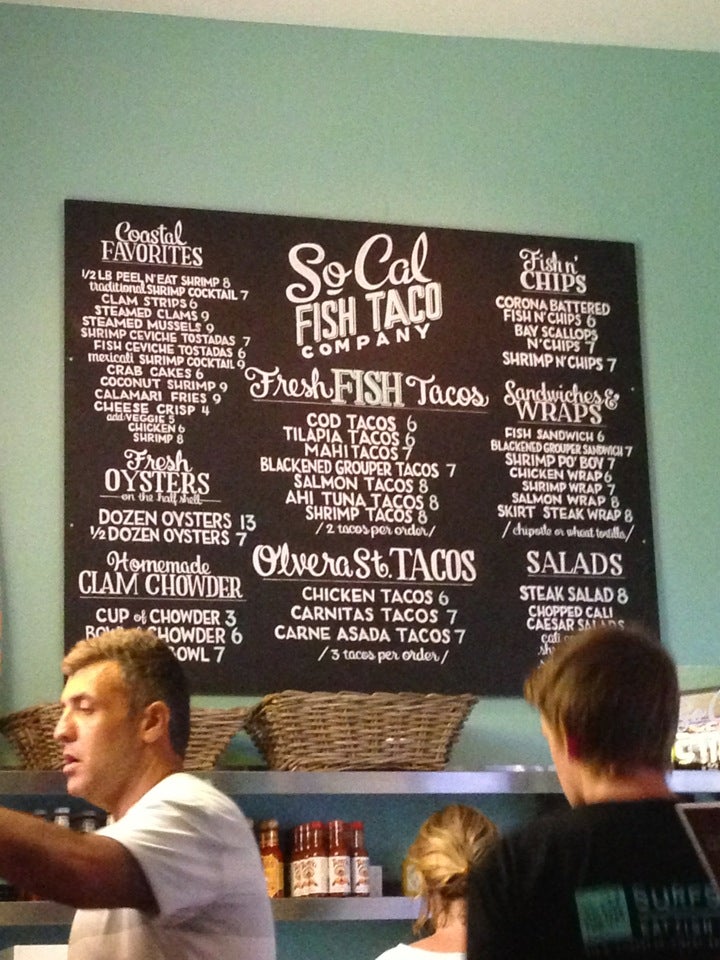 Coastal
FAVORITES
1/2 LB PEEL N' EAT SHRIMP 8
traditional SHRIMP COCKTAIL 7
CLAM STRIPS 6
STEAMED CLAMS 9
STEAMED MUSSELS 9
SHRIMP CEVICHE TOSTADAS 7
FISH CEVICHE TOSTADAS 6
mexicali SHRIMP COCKTAIL 9
CRAB CAKES 6
COCONUT SHRIMP 9
CALAMARI FRIES 9
CHEESE CRISP 4
add VEGGIE 5
CHICKEN 6
SHRIMP 8
Fresh
OYSTERS
on the half shell
DOZEN OYSTERS 13
1/2 DOZEN OYSTERS 7
Homemade
CLAM CHOWDER
CUP of CHOWDER 3
CHOWDER 6
BOWL 7
So Cal
FISH TACO
COMPANY
Fresh FISH Tacos
COD TACOS 6
TILAPIA TACOS 6
MAHI TACOS 7
BLACKENED GROUPER TACOS 7
SALMON TACOS 8
AHI TUNA TACOS 8
SHRIMP TACOS 8
/ 2 tacos per order /
Olvera St. TACOS
CHICKEN TACOS 6
CARNITAS TACOS 7
CARNE ASADA TACOS 7
/ 3 tacos per order /
Fish n'
CHIPS
CORONA BATTERED
FISH N' CHIPS 6
BAY SCALLOPS
N' CHIPS 7
SHRIMP N' CHIPS 7
Sandwiches &
WRAPS
FISH SANDWICH 6
BLACKENED GROUPER SANDWICH 7
SHRIMP PO' BOY 7
CHICKEN WRAP 6
SHRIMP WRAP 7
SALMON WRAP 8
SKIRT STEAK WRAP 8
/ chipotle or wheat tortilla /
SALADS
STEAK SALAD 8
CHOPPED CALI
CAESAR SALADS
cali